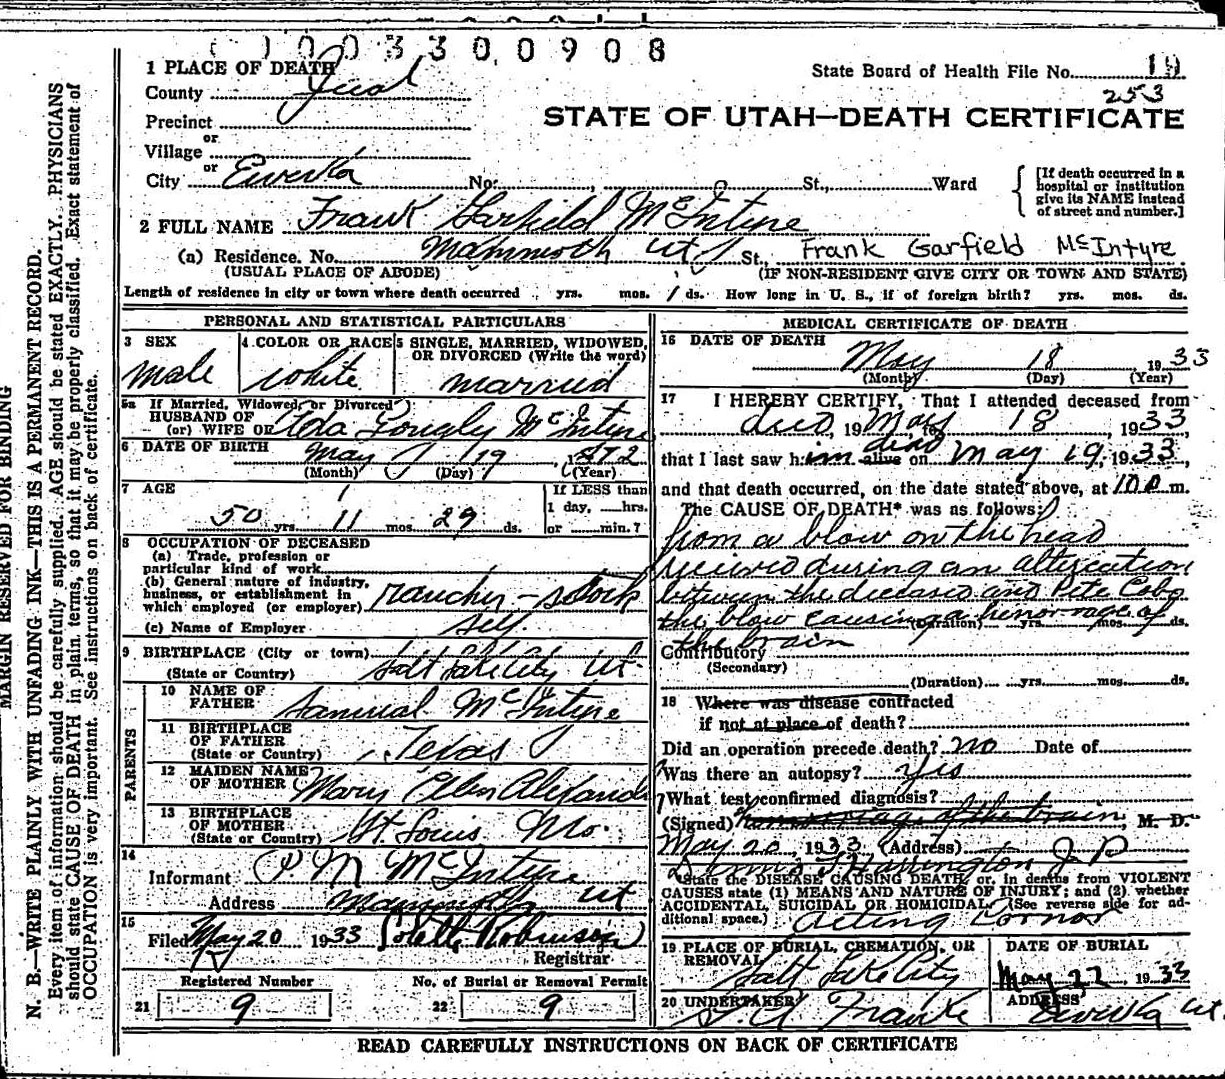 003300908
1 PLACE OF DEATH
State Board of Health File No. 10
County Juab
253
STATE OF UTAH—DEATH CERTIFICATE
Precinct
or
Village
or
City Eureka No. St., Ward
[If death occurred in a hospital or institution give its NAME instead of street and number.]
2 FULL NAME Frank Garfield McIntyre
(a) Residence. No. Mammoth Ut St., Frank Garfield McIntyre
(USUAL PLACE OF ABODE) (IF NON-RESIDENT GIVE CITY OR TOWN AND STATE)
Length of residence in city or town where death occurred yrs. mos. 1 ds. How long in U. S., if of foreign birth? yrs. mos. ds.
PERSONAL AND STATISTICAL PARTICULARS
3 SEX
male
4 COLOR OR RACE
White
5 SINGLE, MARRIED, WIDOWED, OR DIVORCED (Write the word)
married
5a If Married, Widowed, or Divorced
HUSBAND OF
(or) WIFE OF McIntyre
6 DATE OF BIRTH May 19, 1872
(Month) (Day) (Year)
7 AGE
50 yrs. 11 mos. 29 ds.
If LESS than 1 day, hrs. or min.?
8 OCCUPATION OF DECEASED
(a) Trade, profession or particular kind of work
(b) General nature of industry, business, or establishment in which employed (or employer) rancher - stock
(c) Name of Employer self
9 BIRTHPLACE (City or town) Salt Lake City Ut
(State or Country)
PARENTS
10 NAME OF FATHER Samuel McIntyre
11 BIRTHPLACE OF FATHER (State or Country) Texas
12 MAIDEN NAME OF MOTHER Mary Ellen Alexand
13 BIRTHPLACE OF MOTHER (State or Country) St. Louis Mo.
14
Informant P M McIntyre
Address Mammoth Ut
15
Filed May 20 1933 Robinson
Registrar
Registered Number
21 9
No. of Burial or Removal Permit
22 9
MEDICAL CERTIFICATE OF DEATH
16 DATE OF DEATH
May 18 1933
(Month) (Day) (Year)
17 I HEREBY CERTIFY, That I attended deceased from
died, 19 May 18 1933
that I last saw him alive dead on May 19, 1933,
and that death occurred, on the date stated above, at 100 m.
The CAUSE OF DEATH* was as follows:
from a blow on the head
received during an altercation
between the deceased and Pete Cobo
the blow causing a hemorrage of
(Duration) yrs. mos. ds.
the brain
Contributory
(Secondary)
(Duration) yrs. mos. ds.
18 Where was disease contracted
if not at place of death?
Did an operation precede death? no Date of
Was there an autopsy? Yes
What test confirmed diagnosis?
(Signed) hemorrhage of the brain, M. D.
May 20, 1933 (Address)
Harrington J P
*State the DISEASE CAUSING DEATH, or, in deaths from VIOLENT CAUSES state (1) MEANS AND NATURE OF INJURY; and (2) whether ACCIDENTAL, SUICIDAL OR HOMICIDAL. (See reverse side for additional space.)
Acting Cornor
19 PLACE OF BURIAL, CREMATION, OR REMOVAL
Salt Lake City
DATE OF BURIAL
May 22 1933
20 UNDERTAKER
Franke
ADDRESS
Eureka Ut.
READ CAREFULLY INSTRUCTIONS ON BACK OF CERTIFICATE
MARGIN RESERVED FOR BINDING
N. B.—WRITE PLAINLY WITH UNFADING INK—THIS IS A PERMANENT RECORD.
Every item of information should be carefully supplied. AGE should be stated EXACTLY. PHYSICIANS
should state CAUSE OF DEATH in plain terms, so that it may be properly classified. Exact statement of
OCCUPATION is very important. See instructions on back of certificate.